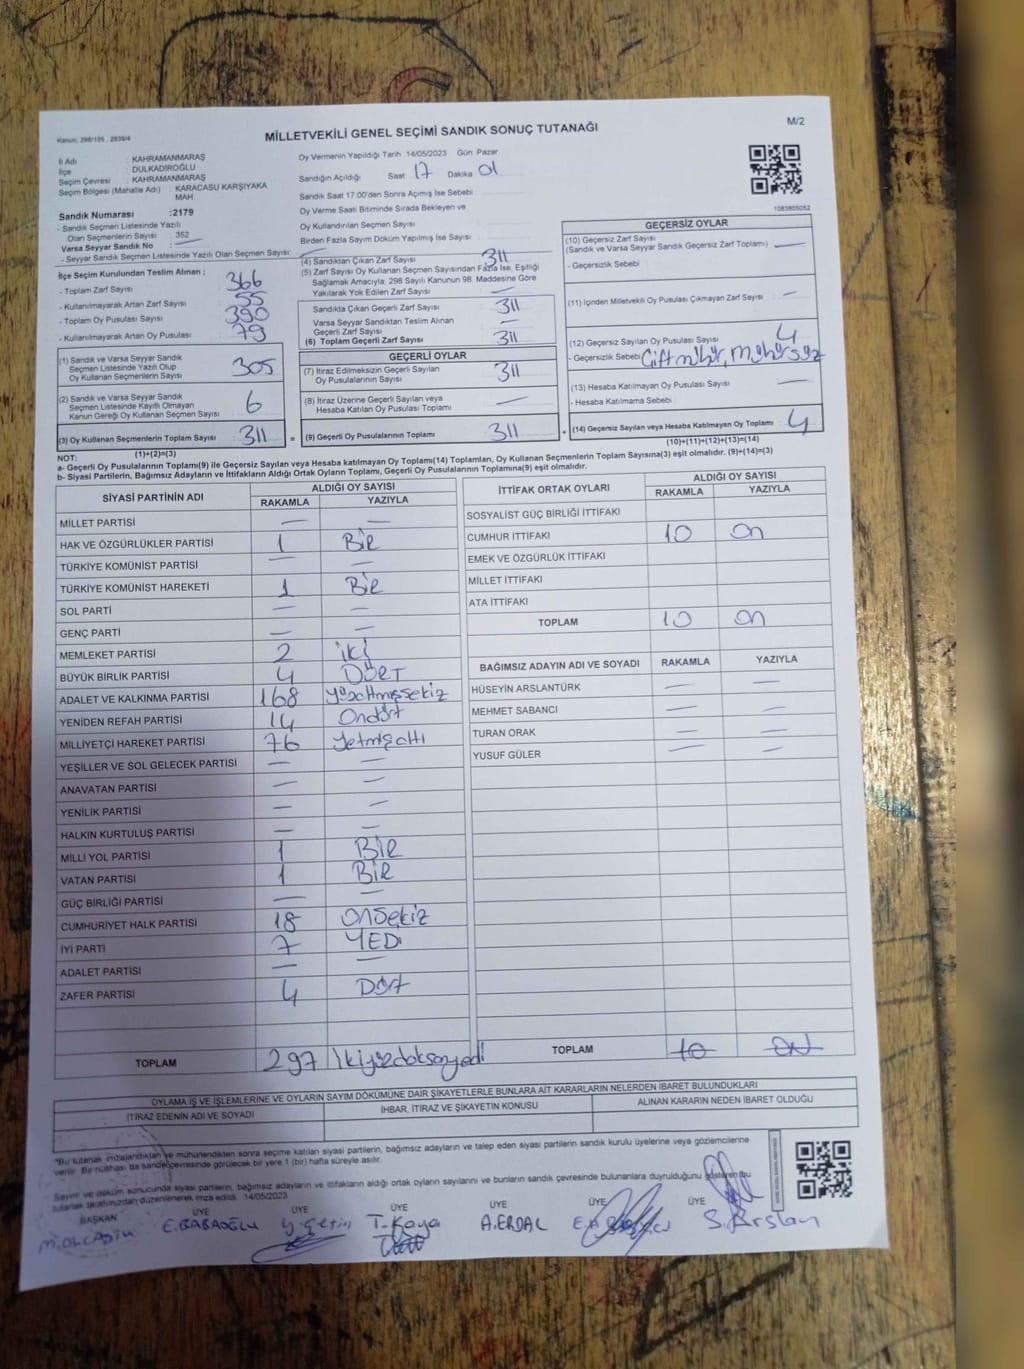 Kanun: 298/105 , 2839/4
MİLLETVEKİLİ GENEL SEÇİMİ SANDIK SONUÇ TUTANAĞI
M/2
İl Adı : KAHRAMANMARAŞ
İlçe : DULKADİROĞLU
Seçim Çevresi : KAHRAMANMARAŞ
Seçim Bölgesi (Mahalle Adı) : KARACASU KARŞIYAKA MAH.
Sandık Numarası :2179
- Sandık Seçmen Listesinde Yazılı
Olan Seçmenlerin Sayısı : 352
Varsa Seyyar Sandık No : —
- Seyyar Sandık Seçmen Listesinde Yazılı Olan Seçmen Sayısı:
Oy Vermenin Yapıldığı Tarih :14/05/2023 Gün: Pazar
Sandığın Açıldığı Saat 17 Dakika 01
Sandık Saat 17.00'den Sonra Açımış İse Sebebi
Oy Verme Saati Bitiminde Sırada Bekleyen ve
Oy Kullandırılan Seçmen Sayısı
Birden Fazla Sayım Döküm Yapılmış İse Sayısı
1083805052
İlçe Seçim Kurulundan Teslim Alınan ;
- Toplam Zarf Sayısı : 366
- Kullanılmayarak Artan Zarf Sayısı : 55
- Toplam Oy Pusulası Sayısı : 390
- Kullanılmayarak Artan Oy Pusulası : 79
(1) Sandık ve Varsa Seyyar Sandık
Seçmen Listesinde Yazılı Olup
Oy Kullanan Seçmenlerin Sayısı 305
(2) Sandık ve Varsa Seyyar Sandık
Seçmen Listesinde Kayıtlı Olmayan
Kanun Gereği Oy Kullanan Seçmen Sayısı 6
(3) Oy Kullanan Seçmenlerin Toplam Sayısı 311
(1)+(2)=(3)
(4) Sandıktan Çıkan Zarf Sayısı 311
(5) Zarf Sayısı Oy Kullanan Seçmen Sayısından Fazla İse, Eşitliği
Sağlamak Amacıyla; 298 Sayılı Kanunun 98. Maddesine Göre
Yakılarak Yok Edilen Zarf Sayısı —
Sandıkta Çıkan Geçerli Zarf Sayısı 311
Varsa Seyyar Sandıktan Teslim Alınan
Geçerli Zarf Sayısı —
(6) Toplam Geçerli Zarf Sayısı 311
GEÇERLİ OYLAR
(7) İtiraz Edilmeksizin Geçerli Sayılan
Oy Pusulalarının Sayısı 311
(8) İtiraz Üzerine Geçerli Sayılan veya
Hesaba Katılan Oy Pusulası Toplamı —
= (9) Geçerli Oy Pusulalarının Toplamı 311
GEÇERSİZ OYLAR
(10) Geçersiz Zarf Sayısı
(Sandık ve Varsa Seyyar Sandık Geçersiz Zarf Toplamı) —
- Geçersizlik Sebebi
(11) İçinden Milletvekili Oy Pusulası Çıkmayan Zarf Sayısı —
(12) Geçersiz Sayılan Oy Pusulası Sayısı 4
- Geçersizlik Sebebi Çift mühür, mühürsüz
(13) Hesaba Katılmayan Oy Pusulası Sayısı —
- Hesaba Katılmama Sebebi
+ (14) Geçersiz Sayılan veya Hesaba Katılmayan Oy Toplamı 4
(10)+(11)+(12)+(13)=(14)
NOT:
a- Geçerli Oy Pusulalarının Toplamı(9) ile Geçersiz Sayılan veya Hesaba katılmayan Oy Toplamı(14) Toplamları, Oy Kullanan Seçmenlerin Toplam Sayısına(3) eşit olmalıdır. (9)+(14)=(3)
b- Siyasi Partilerin, Bağımsız Adayların ve İttifakların Aldığı Ortak Oyların Toplamı, Geçerli Oy Pusulalarının Toplamına(9) eşit olmalıdır.
SİYASİ PARTİNİN ADI ALDIĞI OY SAYISI
RAKAMLA YAZIYLA
MİLLET PARTİSİ — —
HAK VE ÖZGÜRLÜKLER PARTİSİ 1 Bir
TÜRKİYE KOMÜNİST PARTİSİ — —
TÜRKİYE KOMÜNİST HAREKETİ 1 Bir
SOL PARTİ — —
GENÇ PARTİ — —
MEMLEKET PARTİSİ 2 iki
BÜYÜK BİRLİK PARTİSİ 4 DÖRT
ADALET VE KALKINMA PARTİSİ 168 yüzaltmışsekiz
YENİDEN REFAH PARTİSİ 14 Ondört
MİLLİYETÇİ HAREKET PARTİSİ 76 yetmişaltı
YEŞİLLER VE SOL GELECEK PARTİSİ — —
ANAVATAN PARTİSİ — —
YENİLİK PARTİSİ — —
HALKIN KURTULUŞ PARTİSİ — —
MİLLİ YOL PARTİSİ 1 BİR
VATAN PARTİSİ 1 BİR
GÜÇ BİRLİĞİ PARTİSİ — —
CUMHURİYET HALK PARTİSİ 18 onsekiz
İYİ PARTİ 7 YEDİ
ADALET PARTİSİ — —
ZAFER PARTİSİ 4 Dört
TOPLAM 297 ikiyüzdoksanyedi
İTTİFAK ORTAK OYLARI ALDIĞI OY SAYISI
RAKAMLA YAZIYLA
SOSYALİST GÜÇ BİRLİĞİ İTTİFAKI
CUMHUR İTTİFAKI 10 on
EMEK VE ÖZGÜRLÜK İTTİFAKI
MİLLET İTTİFAKI
ATA İTTİFAKI
TOPLAM 10 on
BAĞIMSIZ ADAYIN ADI VE SOYADI RAKAMLA YAZIYLA
HÜSEYİN ARSLANTÜRK — —
MEHMET SABANCI — —
TURAN ORAK — —
YUSUF GÜLER — —
TOPLAM 10 ON
OYLAMA İŞ VE İŞLEMLERİNE VE OYLARIN SAYIM DÖKÜMÜNE DAİR ŞİKAYETLERLE BUNLARA AİT KARARLARIN NELERDEN İBARET BULUNDUKLARI
İTİRAZ EDENİN ADI VE SOYADI İHBAR, İTİRAZ VE ŞİKAYETİN KONUSU ALINAN KARARIN NEDEN İBARET OLDUĞU
*Bu tutanak imzalandıktan ve mühürlendikten sonra seçime katılan siyasi partilerin, bağımsız adayların ve talep eden siyasi partilerin sandık kurulu üyelerine veya gözlemcilerine
verilir. Bir nüshası da sandık çevresinde görülecek bir yere 1 (bir) hafta süreyle asılır.
Sayım ve döküm sonucunda siyasi partilerin, bağımsız adayların ve ittifakların aldığı ortak oyların sayılarını ve bunların sandık çevresinde bulunanlara duyrulduğunu gösteren bu
tutanak tarafımızdan düzenlenerek imza edildi. 14/05/2023
BAŞKAN ÜYE ÜYE ÜYE ÜYE ÜYE ÜYE
E.BABAOĞLU Y.Çetin T.Kaya A.ERDAL S.Arslan